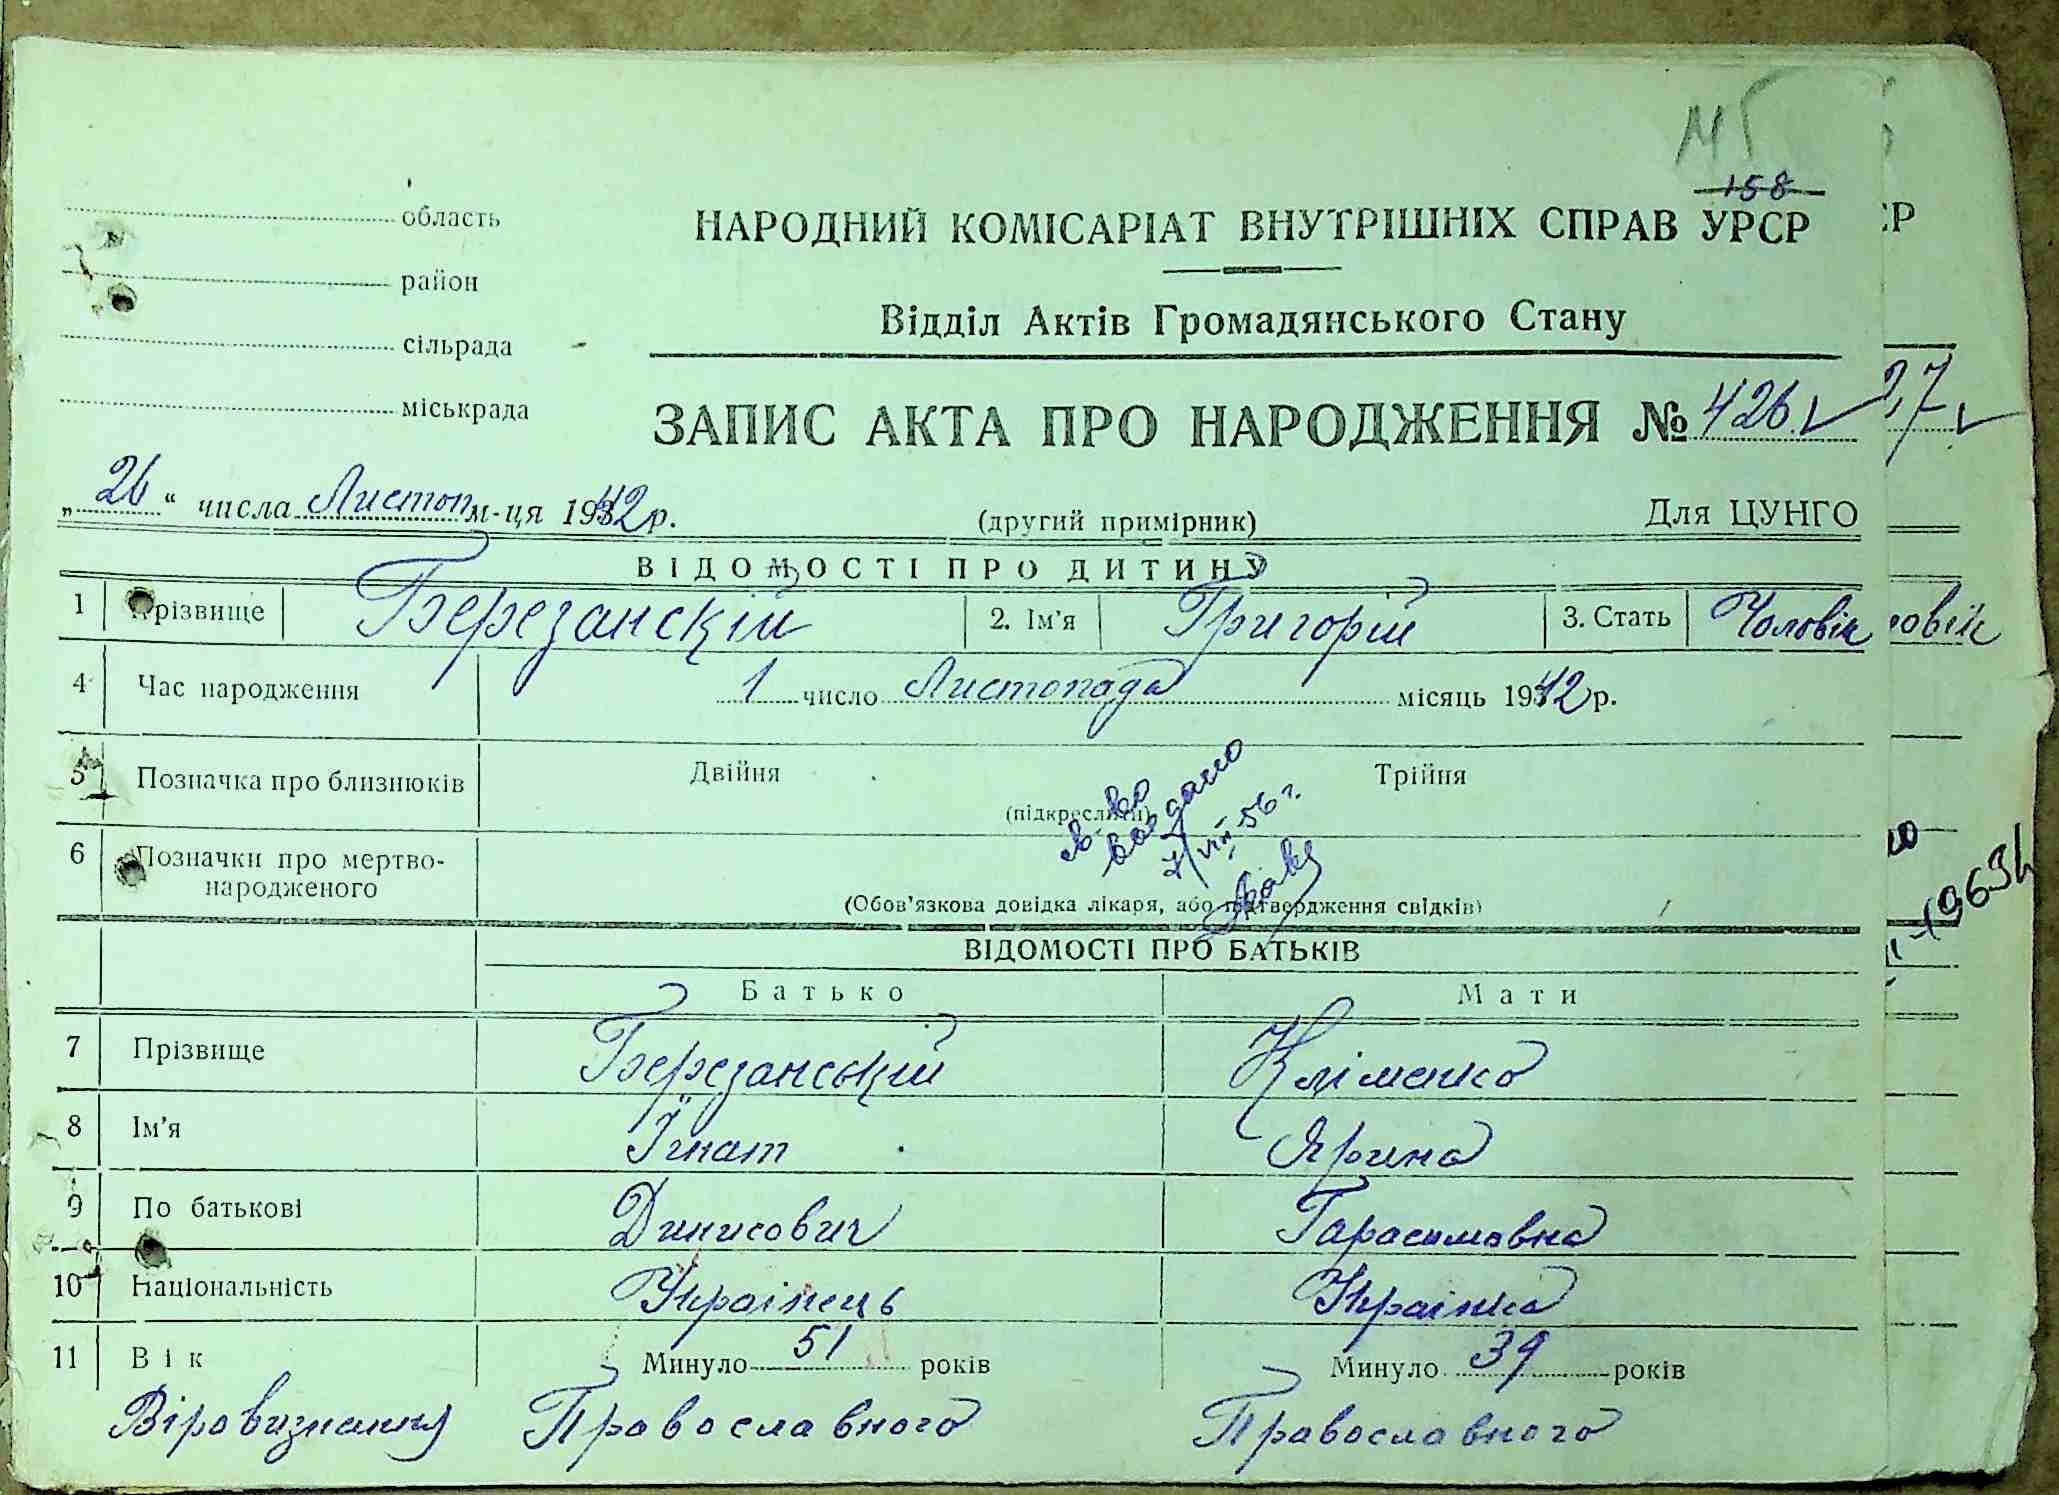 МГ
158
область
НАРОДНИЙ КОМІСАРІАТ ВНУТРІШНІХ СПРАВ УРСР
район
Відділ Актів Громадянського Стану
сільрада
міськрада
ЗАПИС АКТА ПРО НАРОДЖЕННЯ № 426
„26“ числа Листоп м-ця 1942 р. (другий примірник) Для ЦУНГО
ВІДОМОСТІ ПРО ДИТИНУ
1 Прізвище Березанскій 2. Ім'я Григорій 3. Стать Чоловік
4 Час народження 1 число Листопада місяць 1942 р.
5 Позначка про близнюків Двійня Трійня
(підкреслити)
св-во
выдано
7/VIII-56 г.
6 Позначки про мертво-
народженого
(Обов'язкова довідка лікаря, або підтвердження свідків)
ВІДОМОСТІ ПРО БАТЬКІВ
Батько Мати
7 Прізвище Березанський Кліменко
8 Ім'я Їгнат Ярина
9 По батькові Динисович Гарасимовна
10 Національність Украінець Украінка
11 Вік Минуло 51 років Минуло 39 років
Віровизнання Православного Православного
СР
27
овік
1963